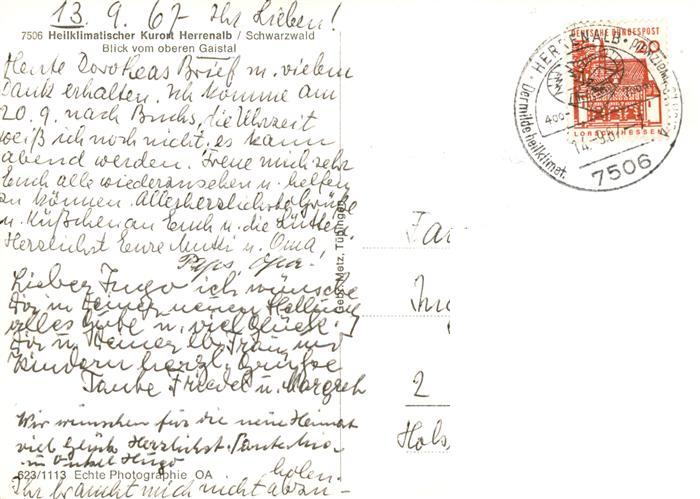 13. 9. 67 Ihr Lieben!
7506 Heilklimatischer Kurort Herrenalb / Schwarzwald
Blick vom oberen Gaistal
Heute Dorotheas Brief m. vielem
Dank erhalten. Ich komme am
20. 9. nach Bruchs, die Uhrzeit
weiß ich noch nicht, es kann
abend werden. Freue mich sehr
Euch alle wiederzusehen u. helfen
zu können. Allerherzlichste Grüße
u. Küßchen an Euch u. die Lütten
Herzlichst Eure Mutti u. Oma,
Paps, Opa.
Lieber Ingo ich wünsche
Dir in Deiner neuen Stellung
alles Gute u. viel Glück.
Dir u. Deiner lb. Frau und
Kindern herzl. Grüße
Tante Friedel u. Margret
Wir wünschen für die neue Heimat
viel Glück Herzlichst. Tante
u. Onkel Hugo
623/1113 Echte Photographie OA
holen.
Ihr braucht mich nicht abzu-
Gebr. Metz, Tübingen
DEUTSCHE BUNDESPOST
20
LORSCH/HESSEN
HERRENALB
Der milde heilklimat.
400-
14.-9.67
7506
2
Hols